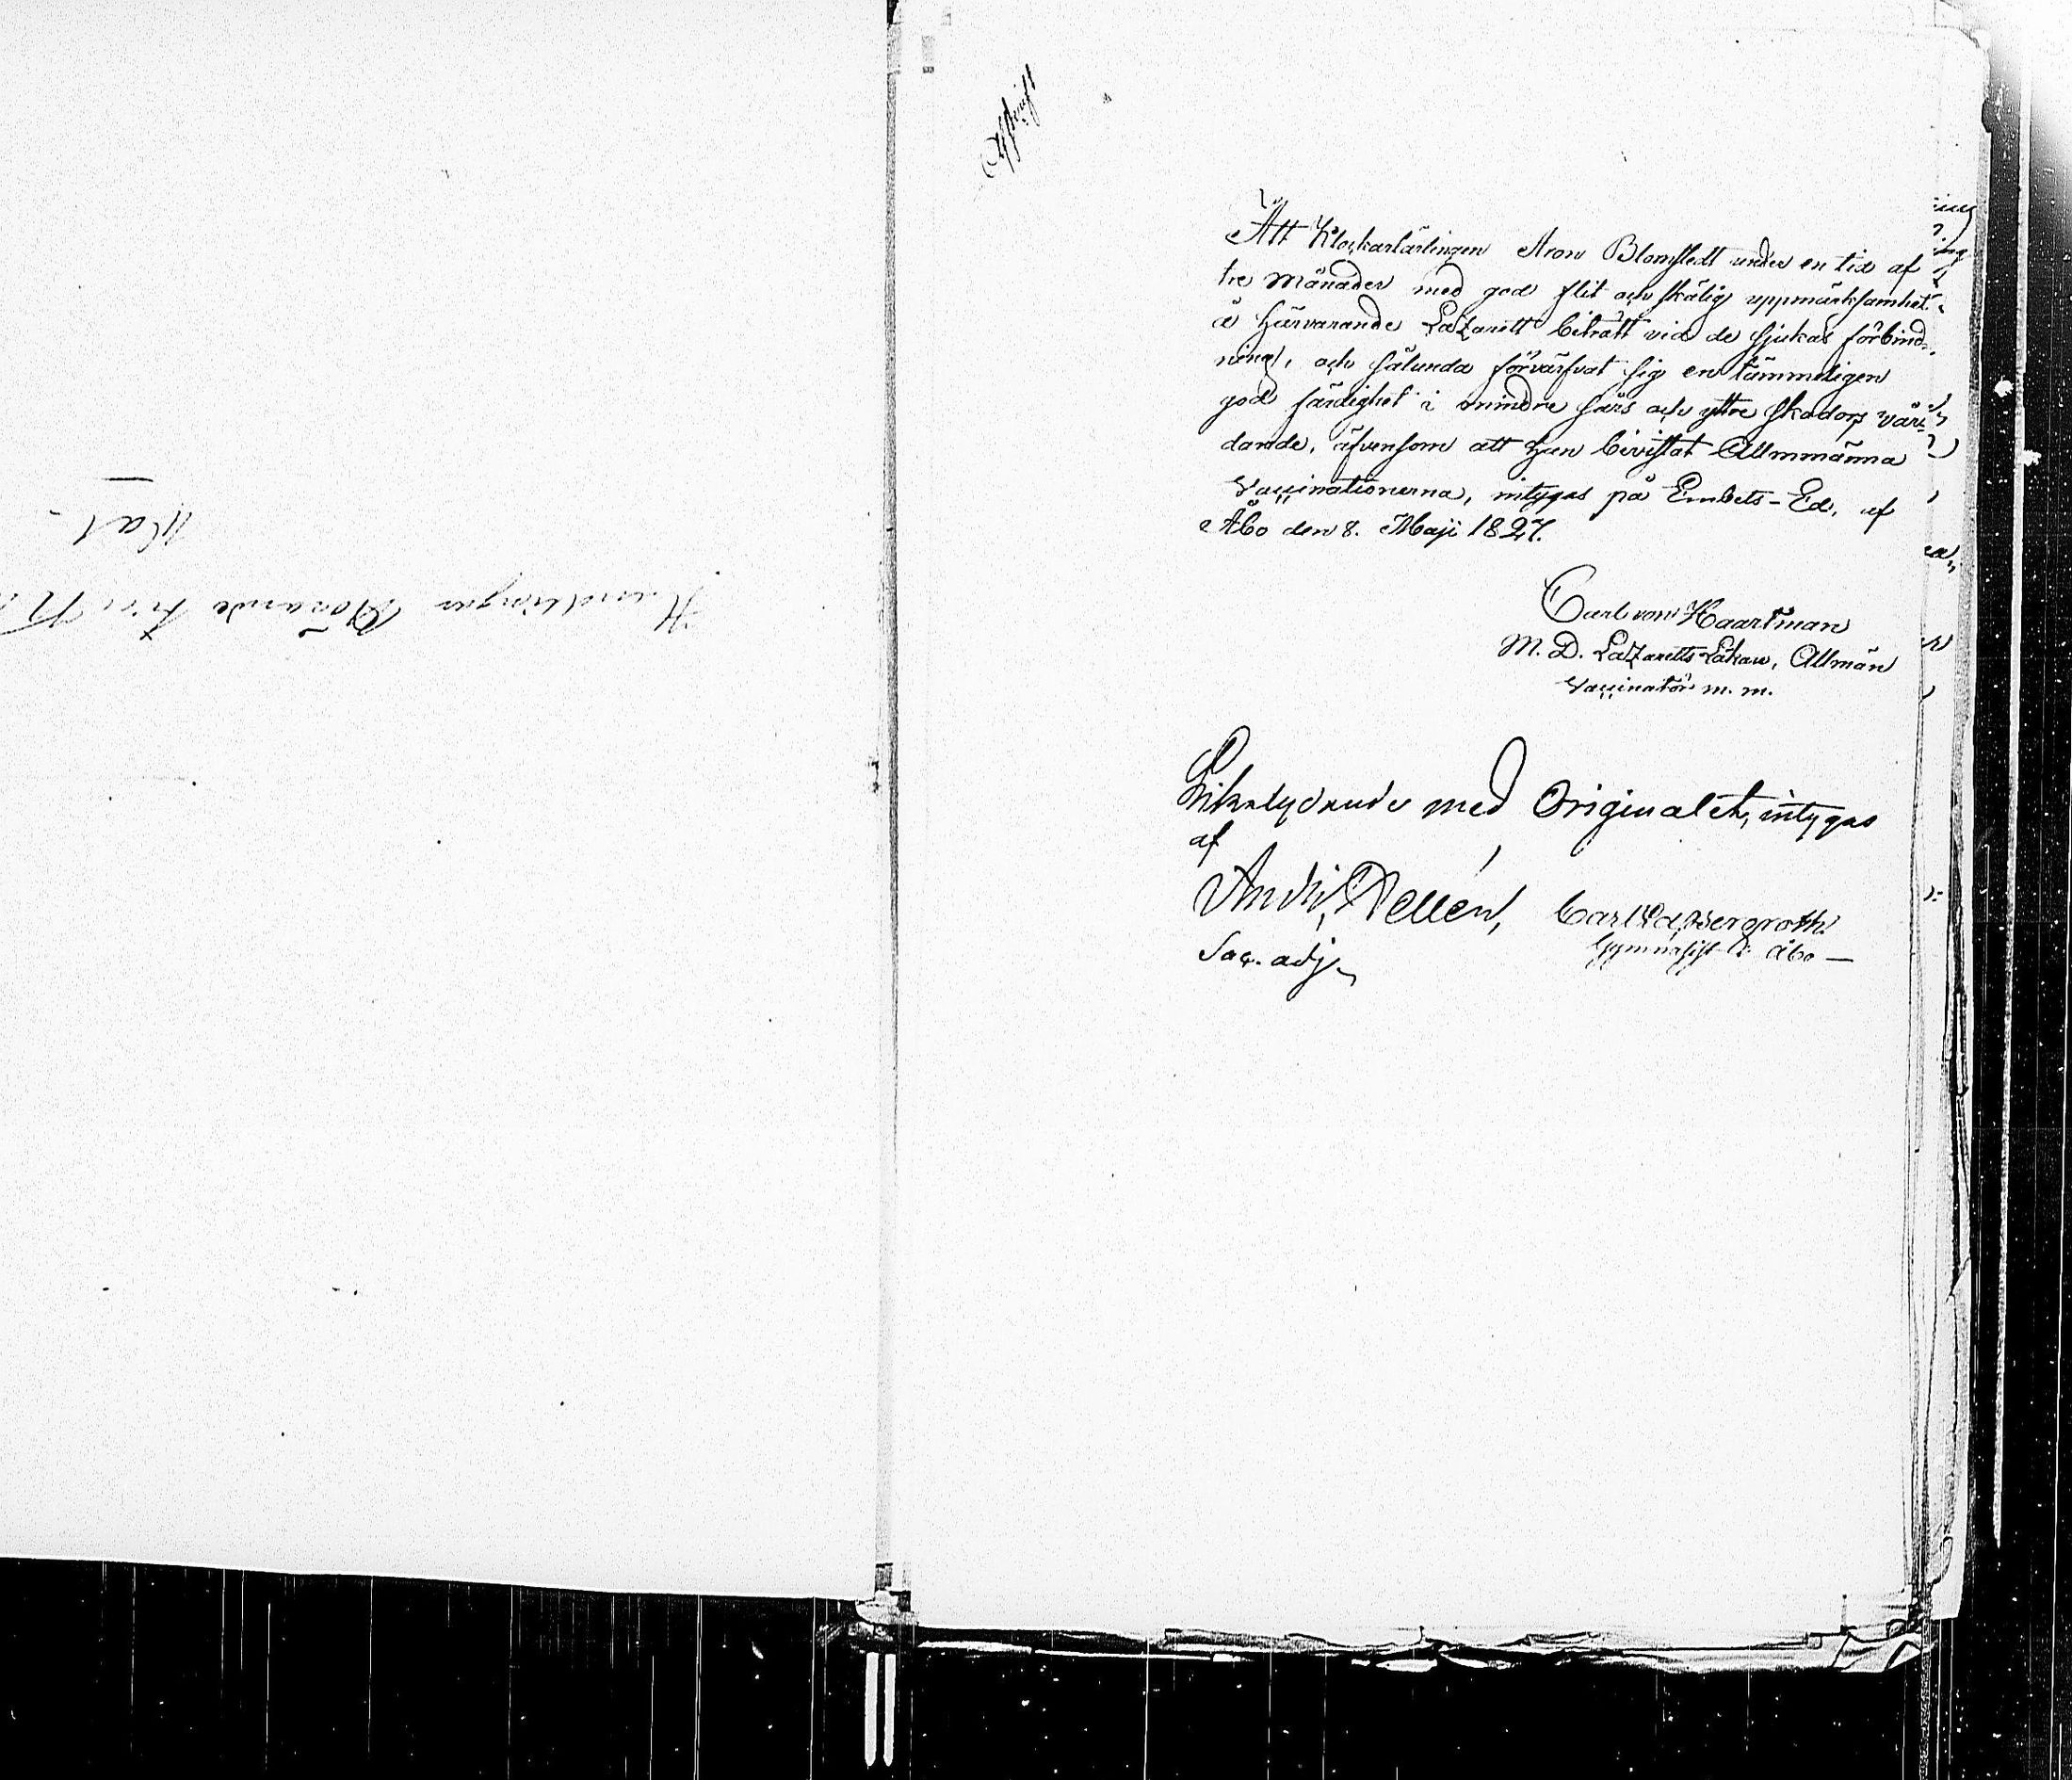 Handlingar Rörande
Afskrift
Att Klockarlärlingen Aron Blomstedt under en tid af
tre månader med god flit och skälig uppmärksamhet
å härvarande Lazarett biträtt vid de sjukas förbind-
ning, och sålunda förvärfvat sig en tämmeligen
god färdighet i mindre sårs och yttre skadors vår-
dande, äfvensom att han bivistat Allmmänna
Vaccinationerna, intygas på Embets-Ed, af
Åbo den 8. Maji 1827.
Carl von Haartman
M. D. Lazaretts Läkare, Allmän
Vaccinatör m. m.
Likalydande med Originalet, intygas
af
Andr. Nellén, Carl Bergroth
Sac. adj. Gymnasist i Åbo —